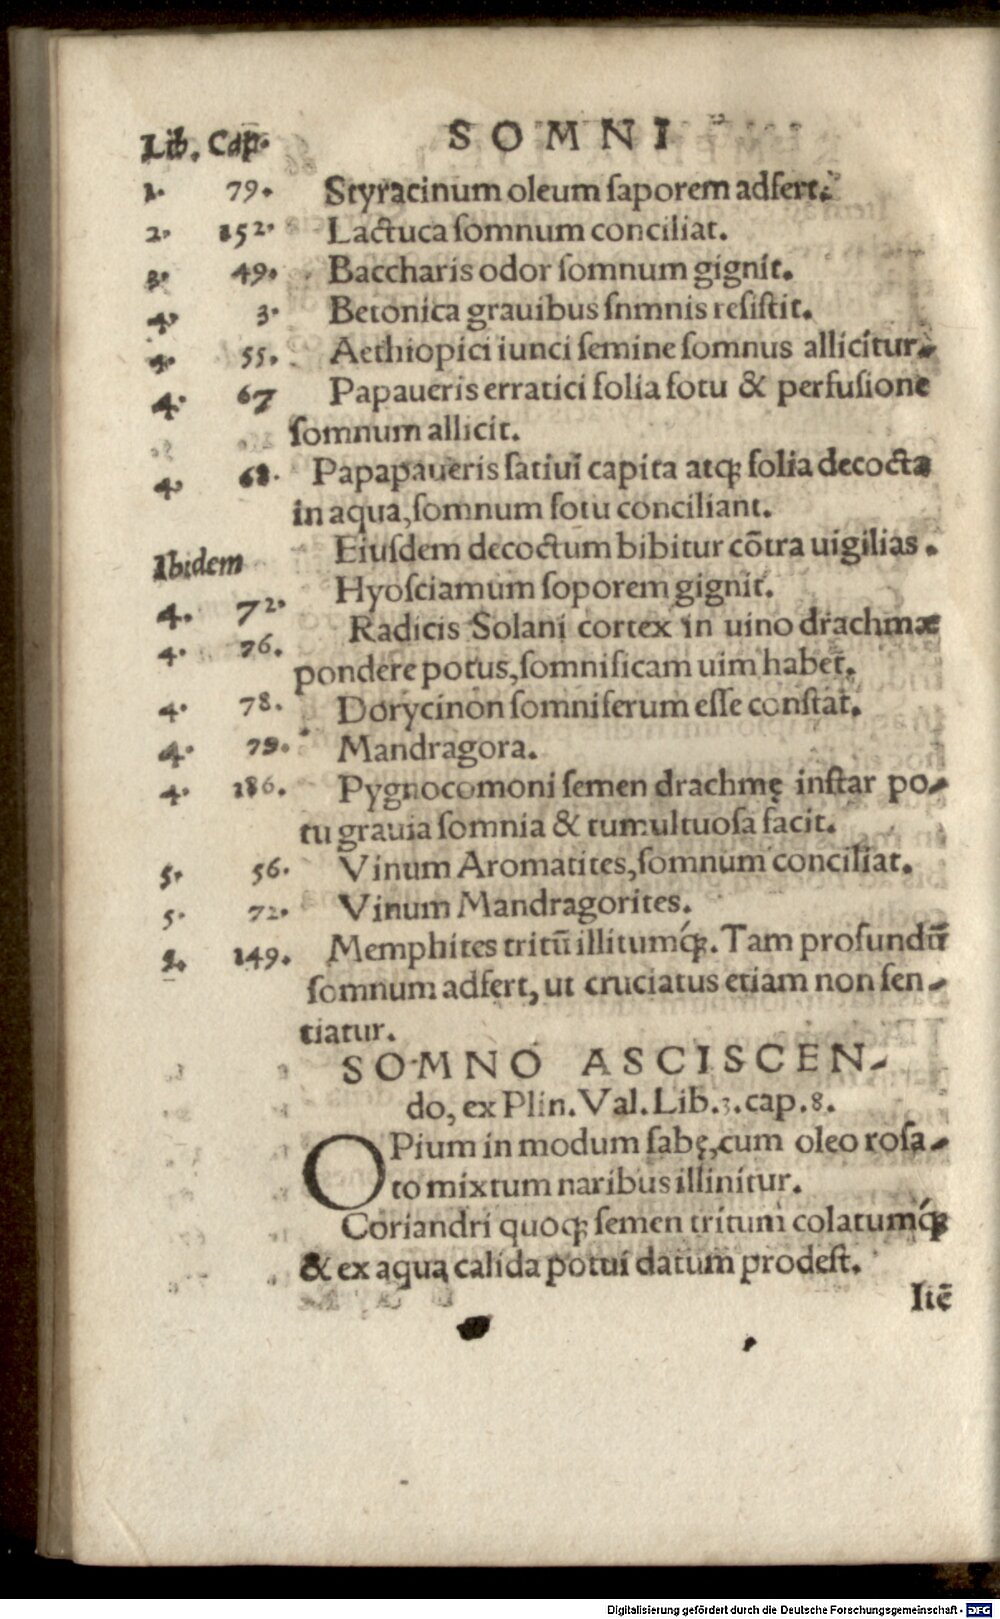 Lib. Cap. SOMNI
1. 79. Styracinum oleum ſaporem adfert.
2. 152. Lactuca ſomnum conciliat.
3. 49. Baccharis odor ſomnum gignit.
4. 3. Betonica grauibus ſnmnis reſiſtit.
4. 55. Aethiopici iunci ſemine ſomnus allicitur.
4. 67 Papaueris erratici folia fotu & perfuſione
ſomnum allicit.
4. 68. Papapaueris ſatiui capita atq; folia decocta
in aqua, ſomnum fotu conciliant.
Ibidem Eiuſdem decoctum bibitur cõtra uigilias.
4. 72. Hyoſciamum ſoporem gignit.
4. 76. Radicis Solani cortex in uino drachmæ
pondere potus, ſomnificam uim habet.
4. 78. Dorycinon ſomniferum eſſe conſtat.
4. 79. Mandragora.
4. 186. Pygnocomoni ſemen drachmę inſtar po-
tu grauia ſomnia & tumultuoſa facit.
5. 56. Vinum Aromatites, ſomnum conciliat.
5. 72. Vinum Mandragorites.
149. Memphites tritũ illitumq́;. Tam profundũ
ſomnum adfert, ut cruciatus etiam non ſen-
tiatur.
SOMNO ASCISCEN-
do, ex Plin. Val. Lib. 3. cap. 8.
OPium in modum fabę, cum oleo roſa-
to mixtum naribus illinitur.
Coriandri quoq; ſemen tritum colatumq́;
& ex aqua calida potui datum prodeſt.
Itẽ
Digitalisierung gefördert durch die Deutsche Forschungsgemeinschaft - DFG